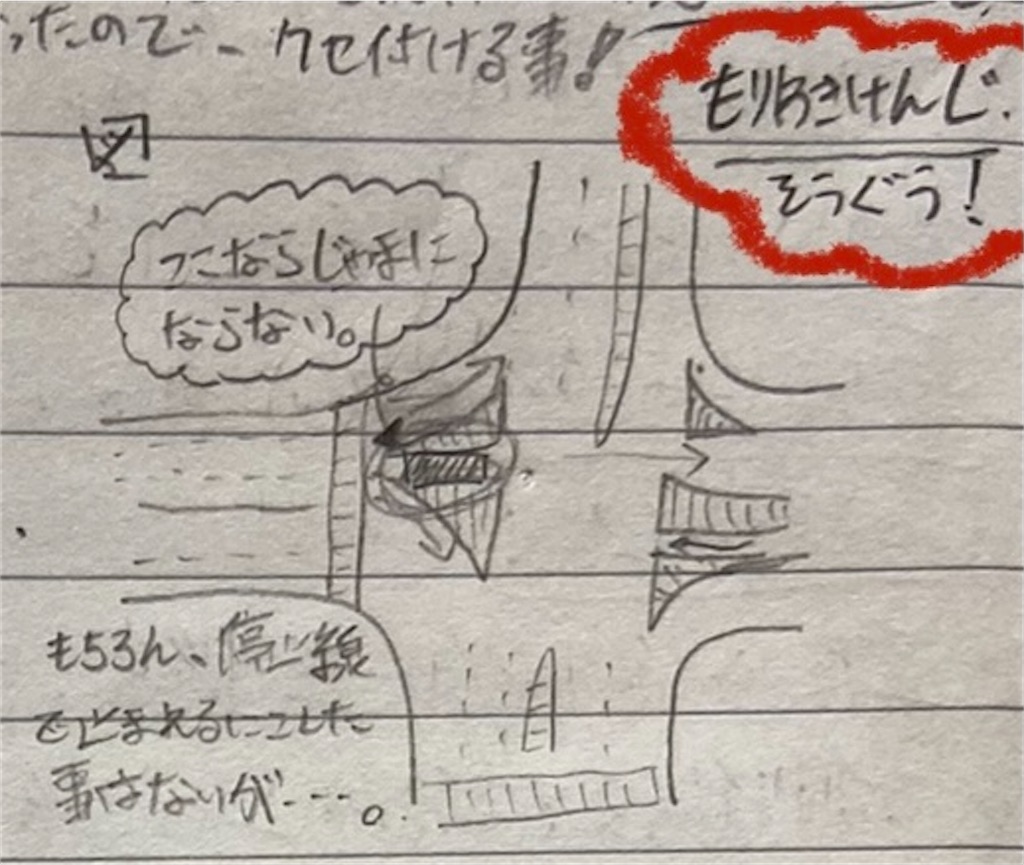 ったので、クセ付ける事!
もりわきけんじ.
そうぐう!
図
ここならじゃまに
ならない。
もちろん、停止線
でとまれるにこした
事はないが---。